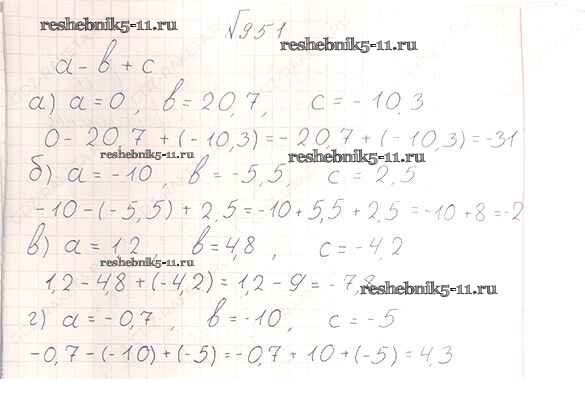 reshebnik5-11.ru
№951
reshebnik5-11.ru
a - b + c
а) a = 0, b = 20,7, c = - 10,3
0 - 20,7 + (- 10,3) = - 20,7 + (- 10,3) = -31
reshebnik5-11.ru reshebnik5-11.ru
б) a = -10, b = -5,5, c = 2,5
-10 - (-5,5) + 2,5 = -10 + 5,5 + 2,5 = -10 + 8 = -2
в) a = 1,2, b = 4,8, c = -4,2
reshebnik5-11.ru
1,2 - 4,8 + (-4,2) = 1,2 - 9 = - 7,8
reshebnik5-11.ru
г) a = -0,7, b = -10, c = -5
-0,7 - (-10) + (-5) = -0,7 + 10 + (-5) = 4,3